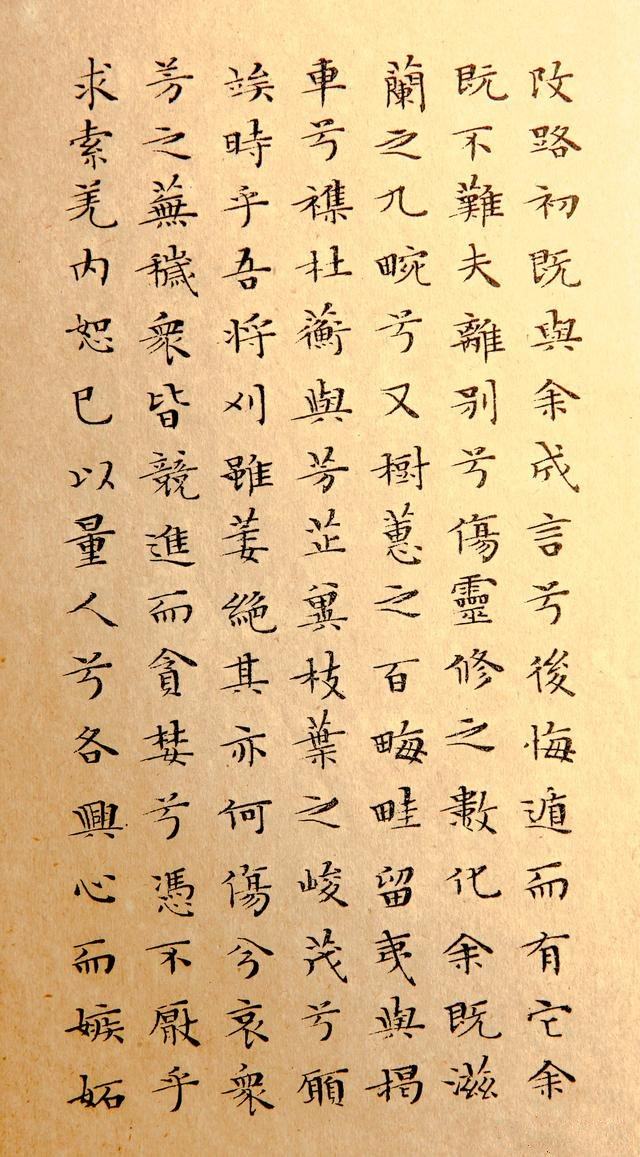 改路初既與余成言兮後悔遁而有它余
既不難夫離別兮傷靈修之數化余既滋
蘭之九畹兮又樹蕙之百畮畦留夷與揭
車兮襍杜蘅與芳芷冀枝葉之峻茂兮願
竢時乎吾將刈雖萎絕其亦何傷兮哀衆
芳之蕪穢衆皆競進而貪婪兮憑不厭乎
求索羌內恕己以量人兮各興心而嫉妬